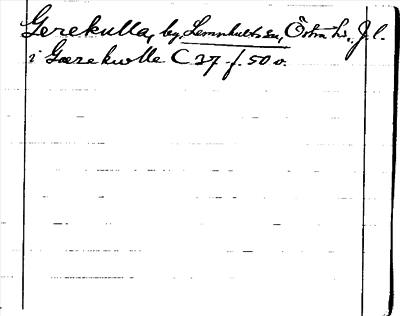 Gerekulla, by, Lemnhults sn, Östra hd., J. l.
i Gærekwlle C 37 f. 50 v.